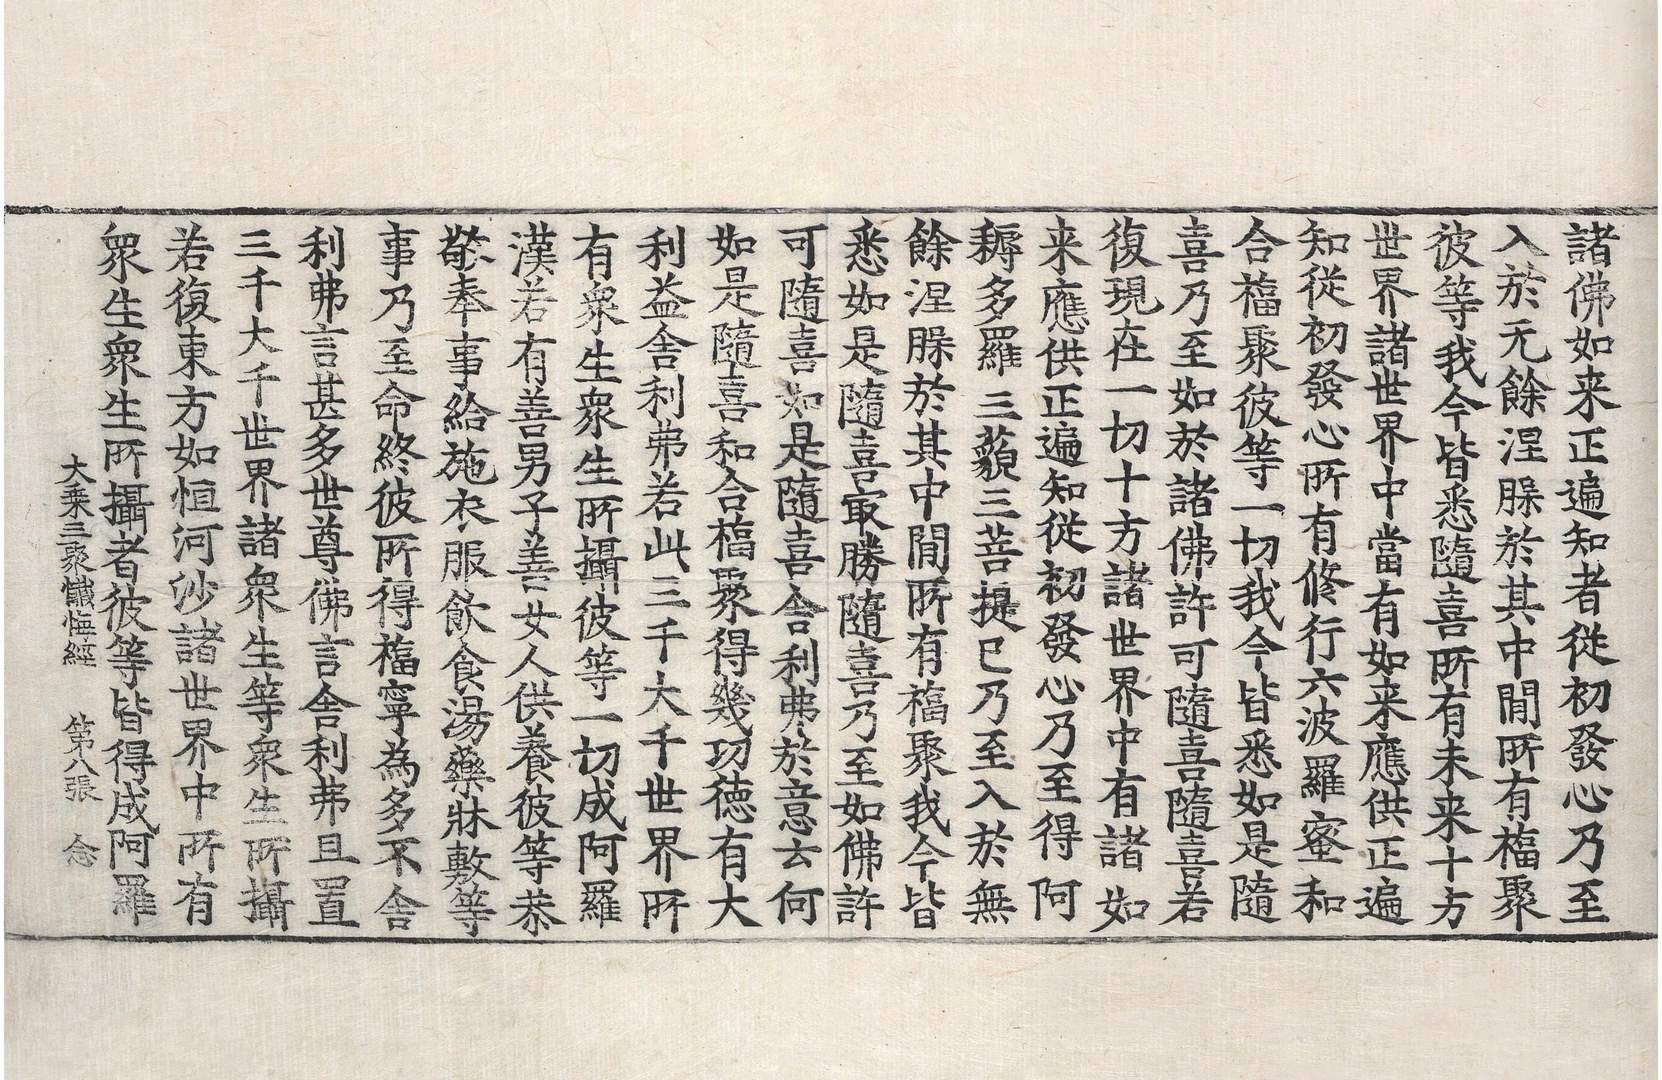 諸佛如来正遍知者從初發心乃至
入於无餘涅槃於其中閒所有福聚
彼等我今皆悉隨喜所有未来十方
世界諸世界中當有如来應供正遍
知從初發心所有修行六波羅蜜和
合福聚彼等一切我今皆悉如是隨
喜乃至如於諸佛許可隨喜隨喜若
復現在一切十方諸世界中有諸如
来應供正遍知從初發心乃至得阿
耨多羅三藐三菩提已乃至入於無
餘涅槃於其中閒所有福聚我今皆
悉如是隨喜取勝隨喜乃至如佛許
可隨喜如是隨喜舍利弗於意云何
如是隨喜和合福聚得幾功德有大
利益舍利弗若此三千大千世界所
有衆生衆生所攝彼等一切成阿羅
漢若有善男子善女人供養彼等恭
敬奉事給施衣服飲食湯藥牀敷等
事乃至命終彼所得福寧為多不舍
利弗言甚多世尊佛言舍利弗且置
三千大千世界諸衆生等衆生所攝
若復東方如恒河沙諸世界中所有
衆生衆生所攝者彼等皆得成阿羅
大乗三聚懺悔經 第八張 念